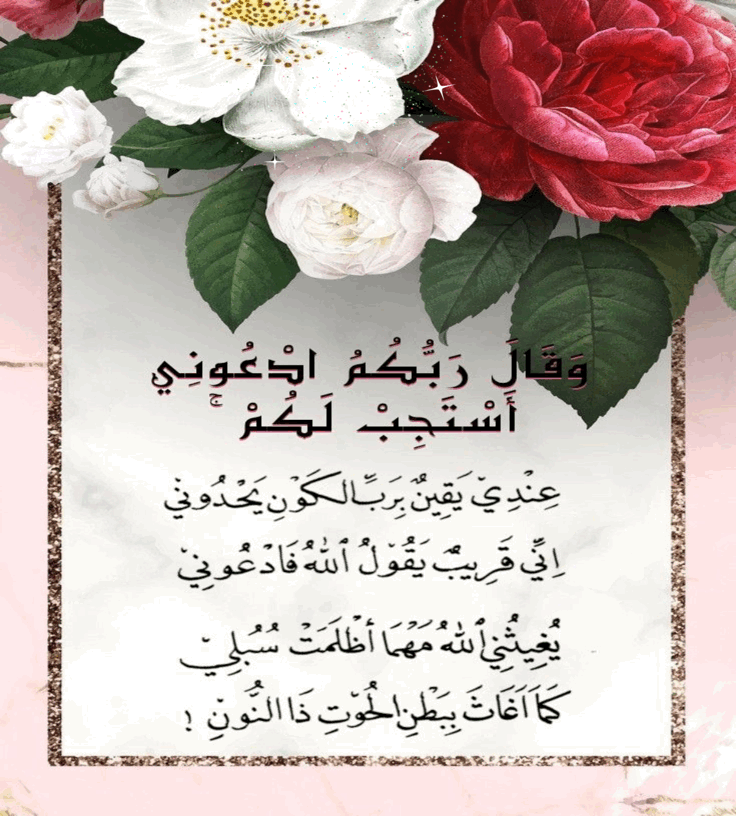 وَقَالَ رَبُّكُمُ ادْعُونِي
أَسْتَجِبْ لَكُمْ ۚ
عِنْدِيْ يَقِينٌ بِرَبِّ الكَوْنِ يَحْدُونِيْ
اِنِّيْ قَرِيبٌ يَقُوْلُ ٱللهُ فَادْعُونِيْ
يُغِيثُنِيْ ٱللهُ مَهْمَا أَظْلَمَتْ سُبُلِيْ
كَمَا اَغَاثَ بِبَطْنِ الْحُوْتِ ذَا النُّوْنِ !